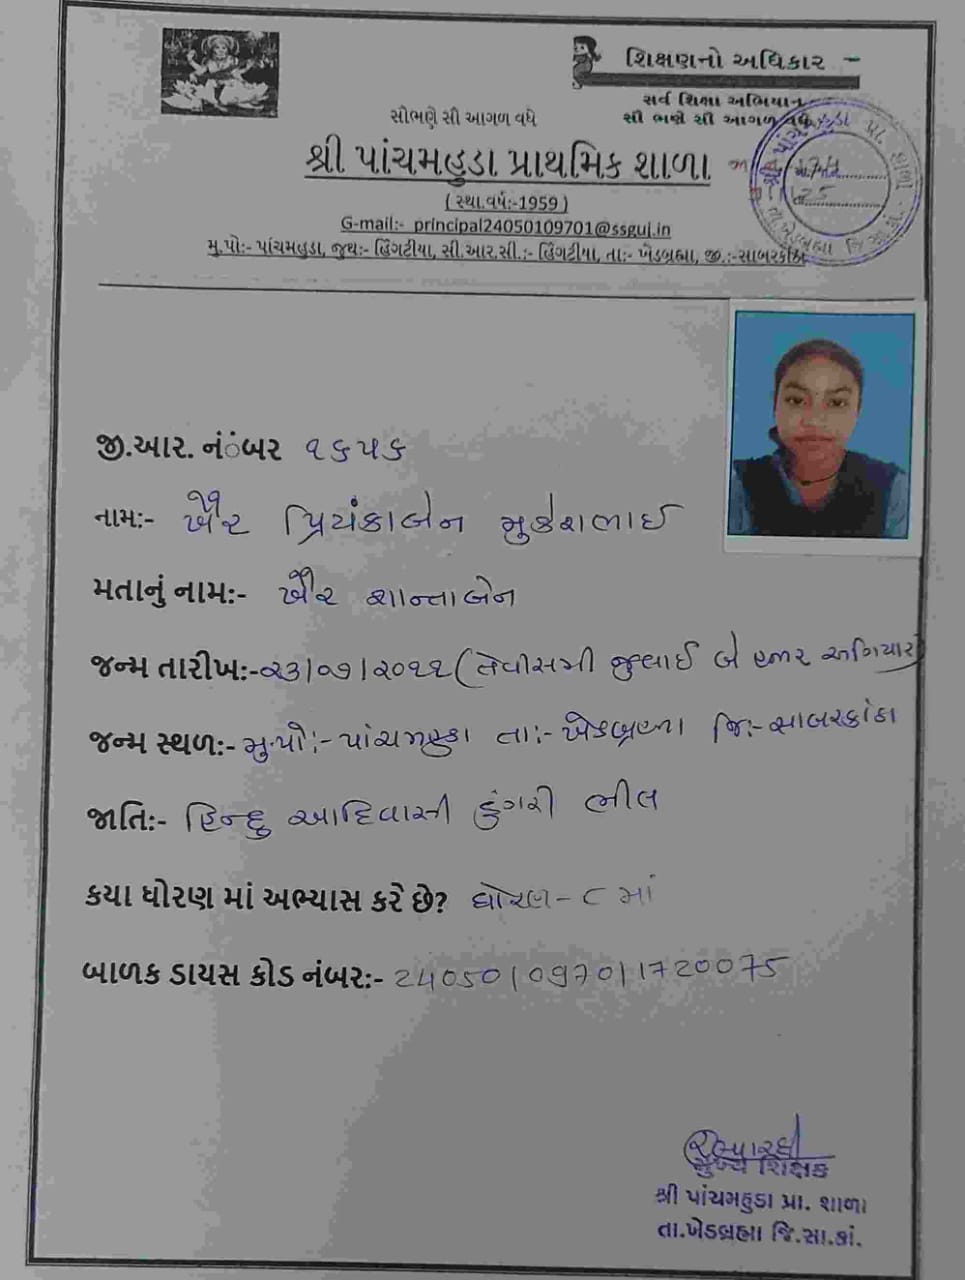 શિક્ષણનો અધિકાર
સર્વ શિક્ષા અભિયાન
સૌ ભણે સૌ આગળ વધે
સૌભણે સૌ આગળ વધે
શ્રી પાંચમહુડા પ્રાથમિક શાળા
( સ્થા.વર્ષ:-1959 )
G-mail:- principal24050109701@ssguj.in
મુ.પો:- પાંચમહુડા, જુથ:- હિંગટીયા, સી.આર.સી.:- હિંગટીયા, તા:- ખેડબ્રહ્મા, જી.:-સાબરકાંઠા
જી.આર. નંબર ૧૬૫૬
નામ:- ખૈર પ્રિયંકાબેન મુકેશભાઈ
મતાનું નામ:- ખૈર શાન્તાબેન
જન્મ તારીખ:-૨૩/૦૭/૨૦૧૧ (તેવીસમી જુલાઈ બે હજાર અગિયાર)
જન્મ સ્થળ:- મુ.પો:- પાંચમહુડા તા:- ખેડબ્રહ્મા જિ:- સાબરકાંઠા
જાતિ:- હિન્દુ આદિવાસી ડુંગરી ભીલ
કયા ધોરણ માં અભ્યાસ કરે છે? ધોરણ - ૮ માં
બાળક ડાયસ કોડ નંબર:- 240501097011720075
મુખ્ય શિક્ષક
શ્રી પાંચમહુડા પ્રા. શાળા
તા.ખેડબ્રહ્મા જિ.સા.કાં.